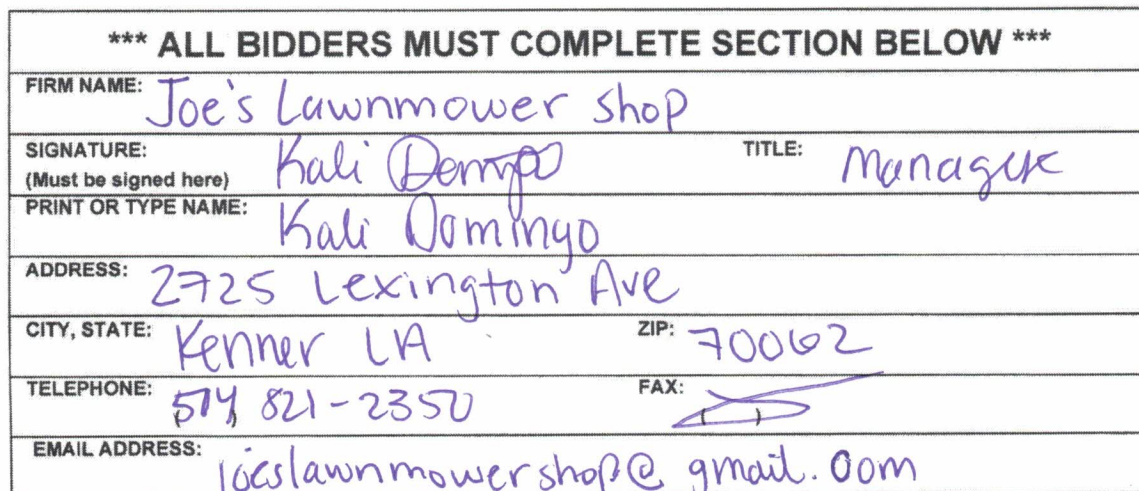 *** ALL BIDDERS MUST COMPLETE SECTION BELOW ***
FIRM NAME: Joe's Lawnmower shop
SIGNATURE: Kali TITLE: Manager
(Must be signed here)
PRINT OR TYPE NAME: Kali Domingo
ADDRESS: 2725 Lexington Ave
CITY, STATE: Kenner LA ZIP: 70062
TELEPHONE: (504) 821-2350 FAX: ( )
EMAIL ADDRESS: joeslawnmowershop@gmail.com